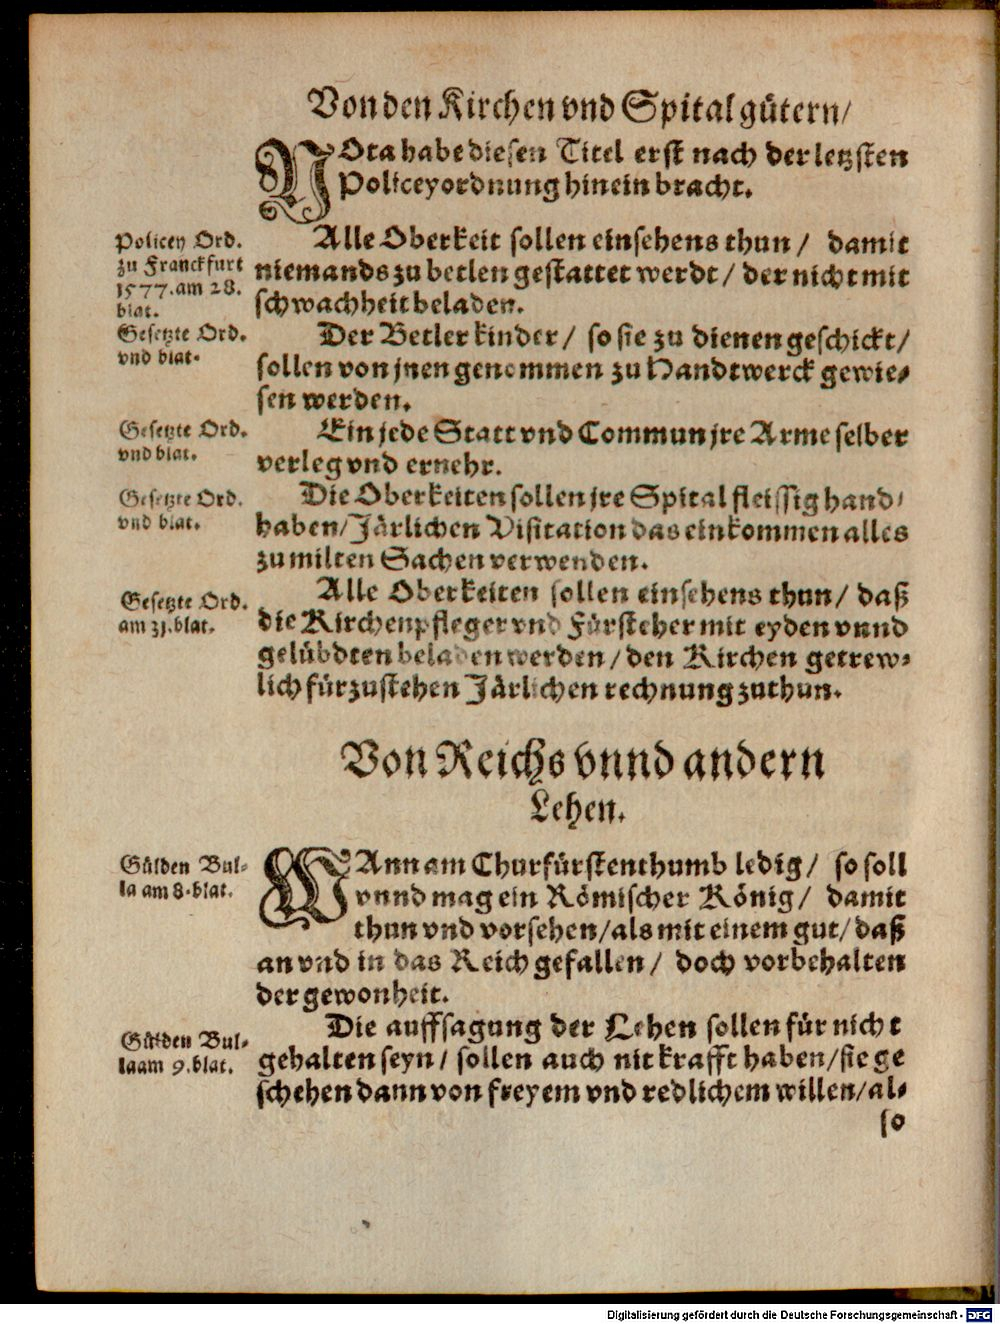 Von den Kirchen vnd Spital gütern/
NOta habe diesen Titel erst nach der letzsten
Policeyordnung hinein bracht.
Policey Ord.
zu Franckfurt
1577. am 28.
blat.
Alle Oberkeit sollen einsehens thun/ damit
niemands zu betlen gestattet werdt/ der nicht mit
schwachheit beladen.
Gesetzte Ord.
vnd blat.
Der Betler kinder/ so sie zu dienen geschickt/
sollen von jnen genommen zu Handtwerck gewie-
sen werden.
Gesetzte Ord.
vnd blat.
Ein jede Statt vnd Commun jre Arme selber
verleg vnd ernehr.
Gesetzte Ord.
vnd blat.
Die Oberkeiten sollen jre Spital fleissig hand/
haben/ Järlichen Visitation das einkommen alles
zu milten Sachen verwenden.
Gesetzte Ord.
am 31. blat.
Alle Oberkeiten sollen einsehens thun/ daß
die Kirchenpfleger vnd Fürsteher mit eyden vnnd
gelübdten beladen werden/ den Kirchen getrew-
lich fürzustehen Järlichen rechnung zuthun.
Von Reichs vnnd andern
Lehen.
Gülden Bul-
la am 8. blat.
WAnn am Churfürstenthumb ledig/ so soll
vnnd mag ein Römischer König/ damit
thun vnd vorsehen/ als mit einem gut/ daß
an vnd in das Reich gefallen/ doch vorbehalten
der gewonheit.
Gülden Bul-
la am 9. blat.
Die auffsagung der Lehen sollen für nicht
gehalten seyn/ sollen auch nit krafft haben/ sie ge
schehen dann von freyem vnd redlichem willen/ al-
so
Digitalisierung gefördert durch die Deutsche Forschungsgemeinschaft - DFG